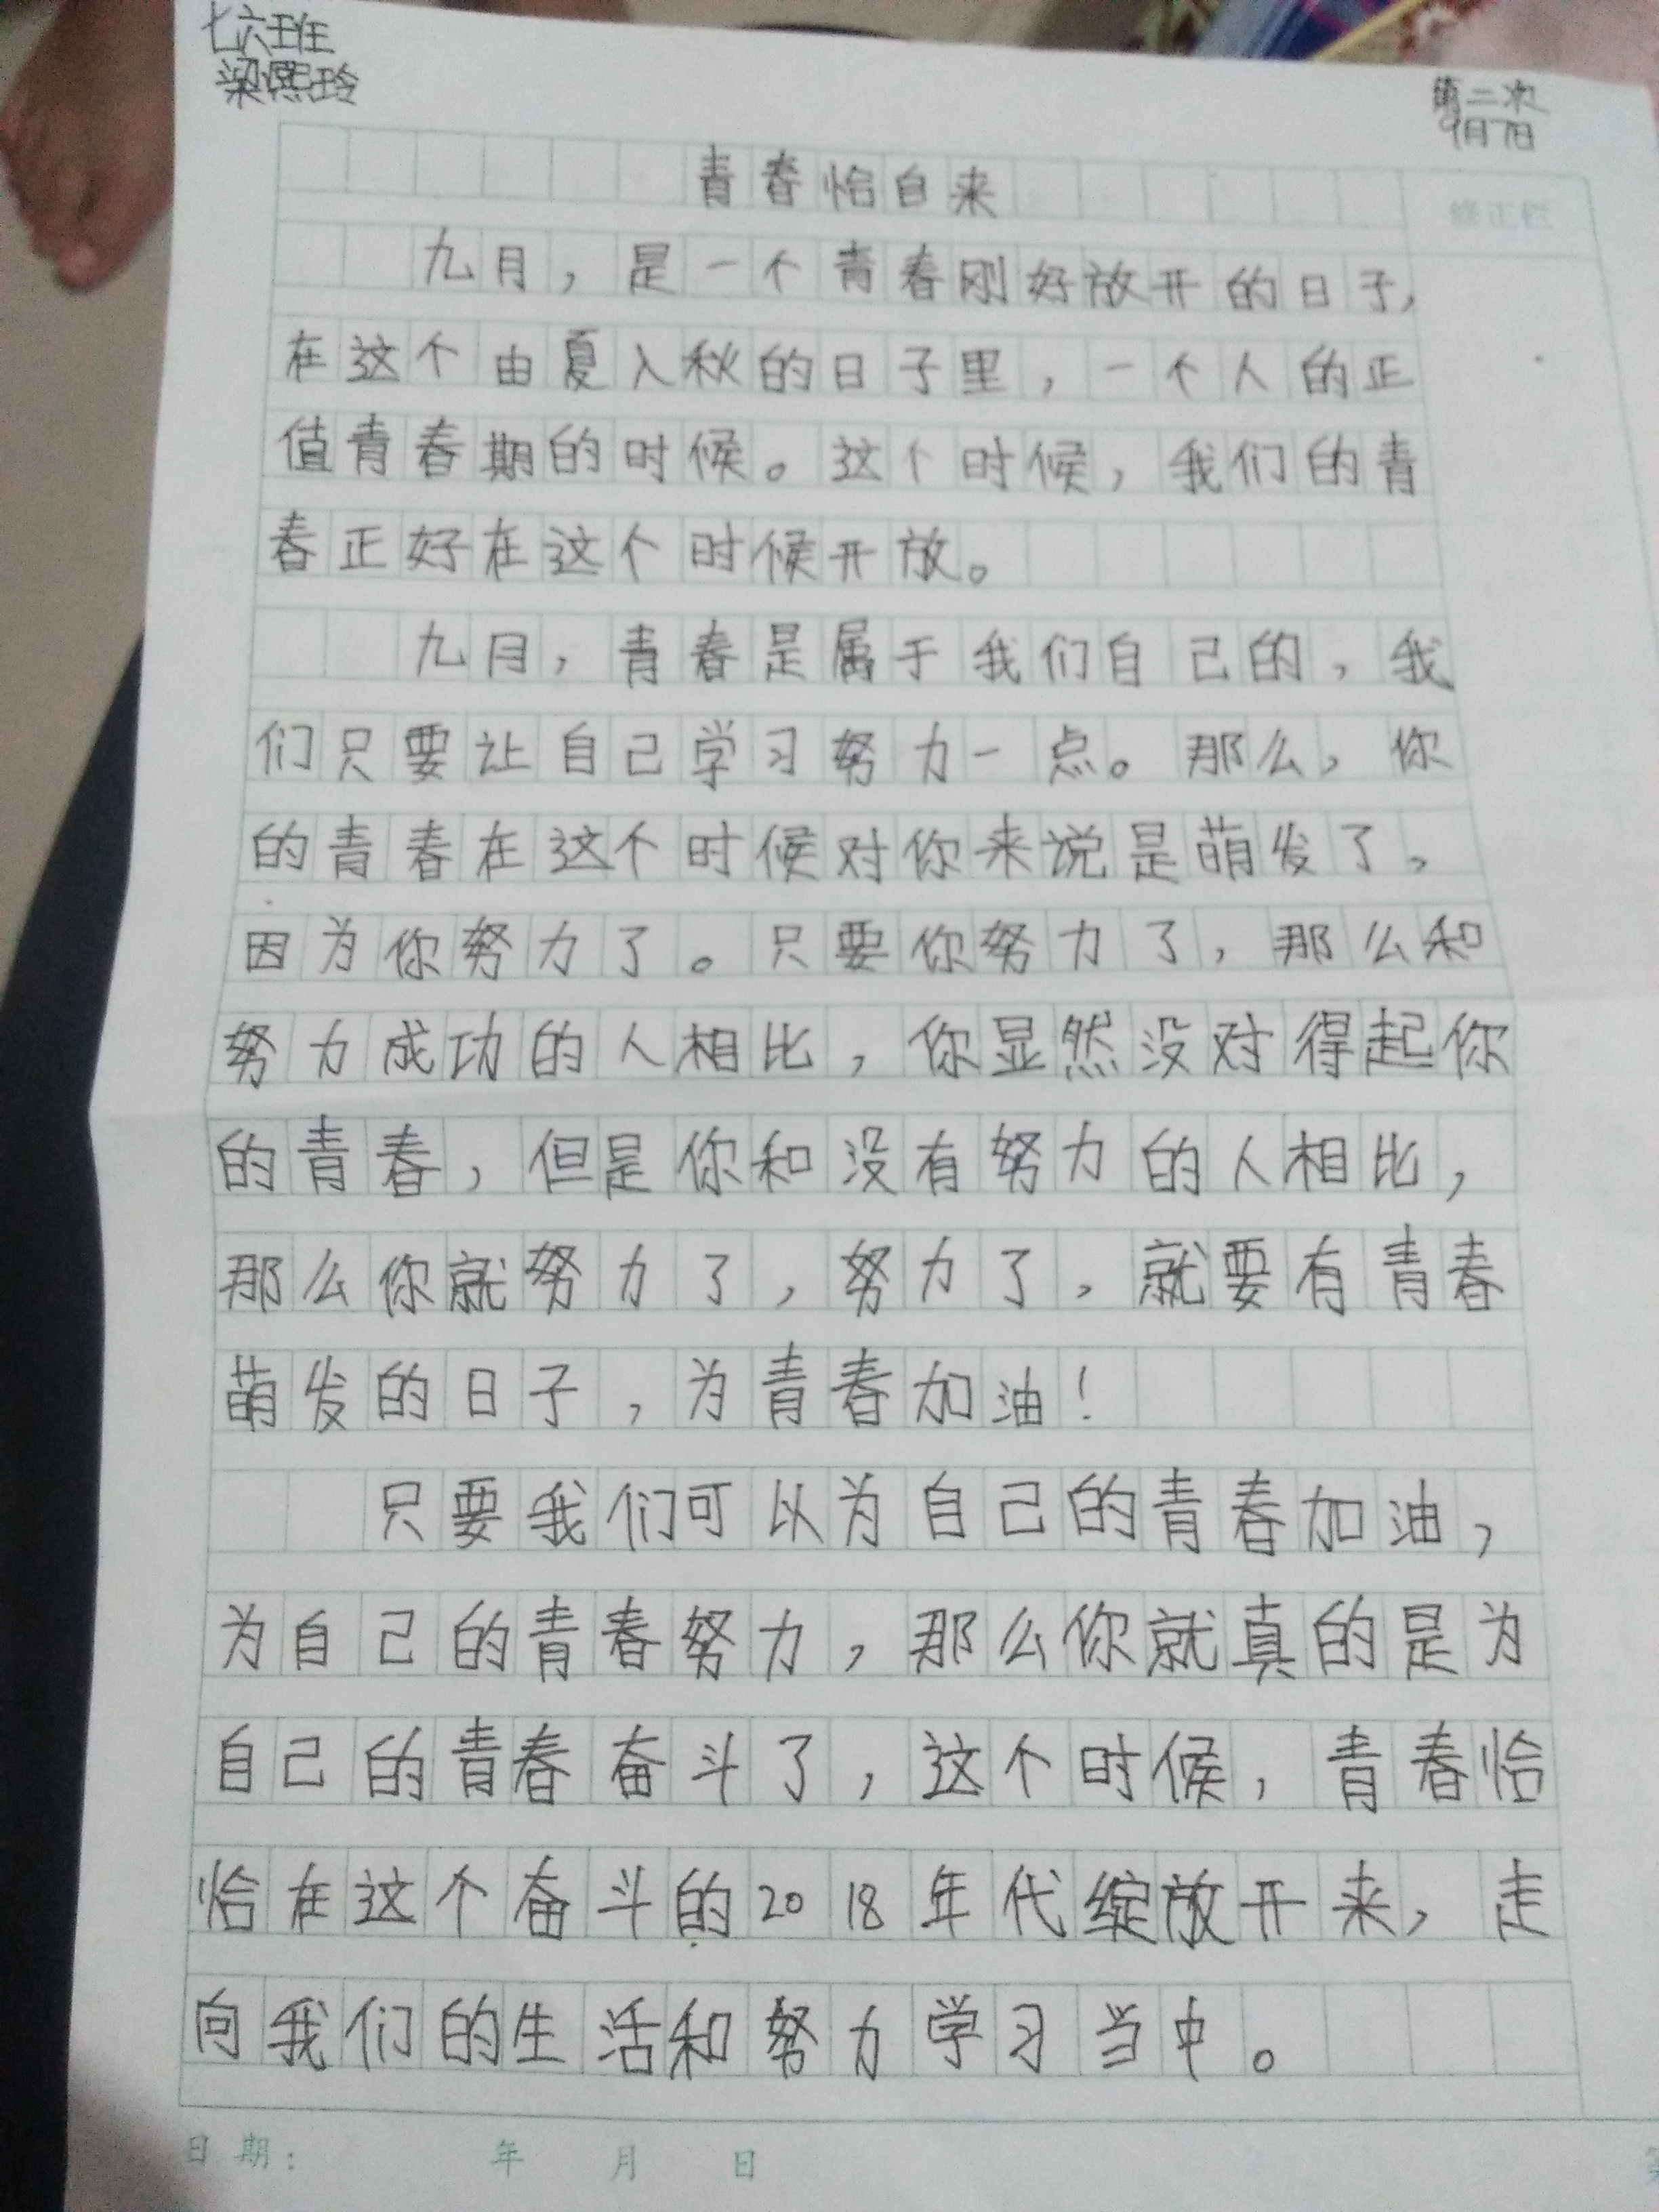 七六班
梁熙玲
第二次
9月7日
青春恰自来
修正栏
九月，是一个青春刚好放开的日子，
在这个由夏入秋的日子里，一个人的正
值青春期的时候。这个时候，我们的青
春正好在这个时候开放。
九月，青春是属于我们自己的，我
们只要让自己学习努力一点。那么，你
的青春在这个时候对你来说是萌发了，
因为你努力了。只要你努力了，那么和
努力成功的人相比，你显然没对得起你
的青春，但是你和没有努力的人相比，
那么你就努力了，努力了，就要有青春
萌发的日子，为青春加油！
只要我们可以为自己的青春加油，
为自己的青春努力，那么你就真的是为
自己的青春奋斗了，这个时候，青春恰
恰在这个奋斗的2018年代绽放开来，走
向我们的生活和努力学习当中。
日期： 年 月 日